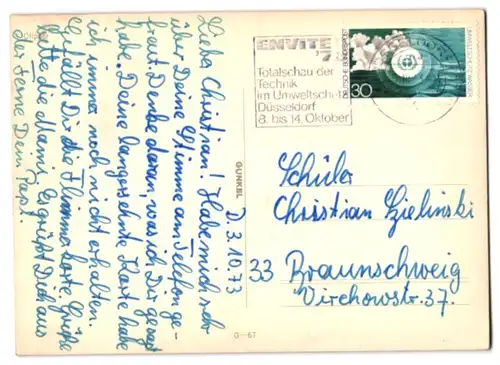 D. 3.10.73
Lieber Christian! Habe mich sehr
über Deine Stimme am Telefon ge-
freut. Denke daran, was ich Dir gesagt
habe. Deine langersehnte Karte habe
ich immer noch nicht erhalten.
Gefällt Dir die Flimmerkarte. Grüße
bitte die Mami. Es grüßt Dich aus
der Ferne Dein Papi.
GUNKEL
G-67
ENVITEC
'73
Totalschau der
Technik
im Umweltschutz
Düsseldorf
8. bis 14. Oktober
DEUTSCHE BUNDESPOST
30
Schüler
Christian Zielinski
33 Braunschweig
Virchowstr. 37.